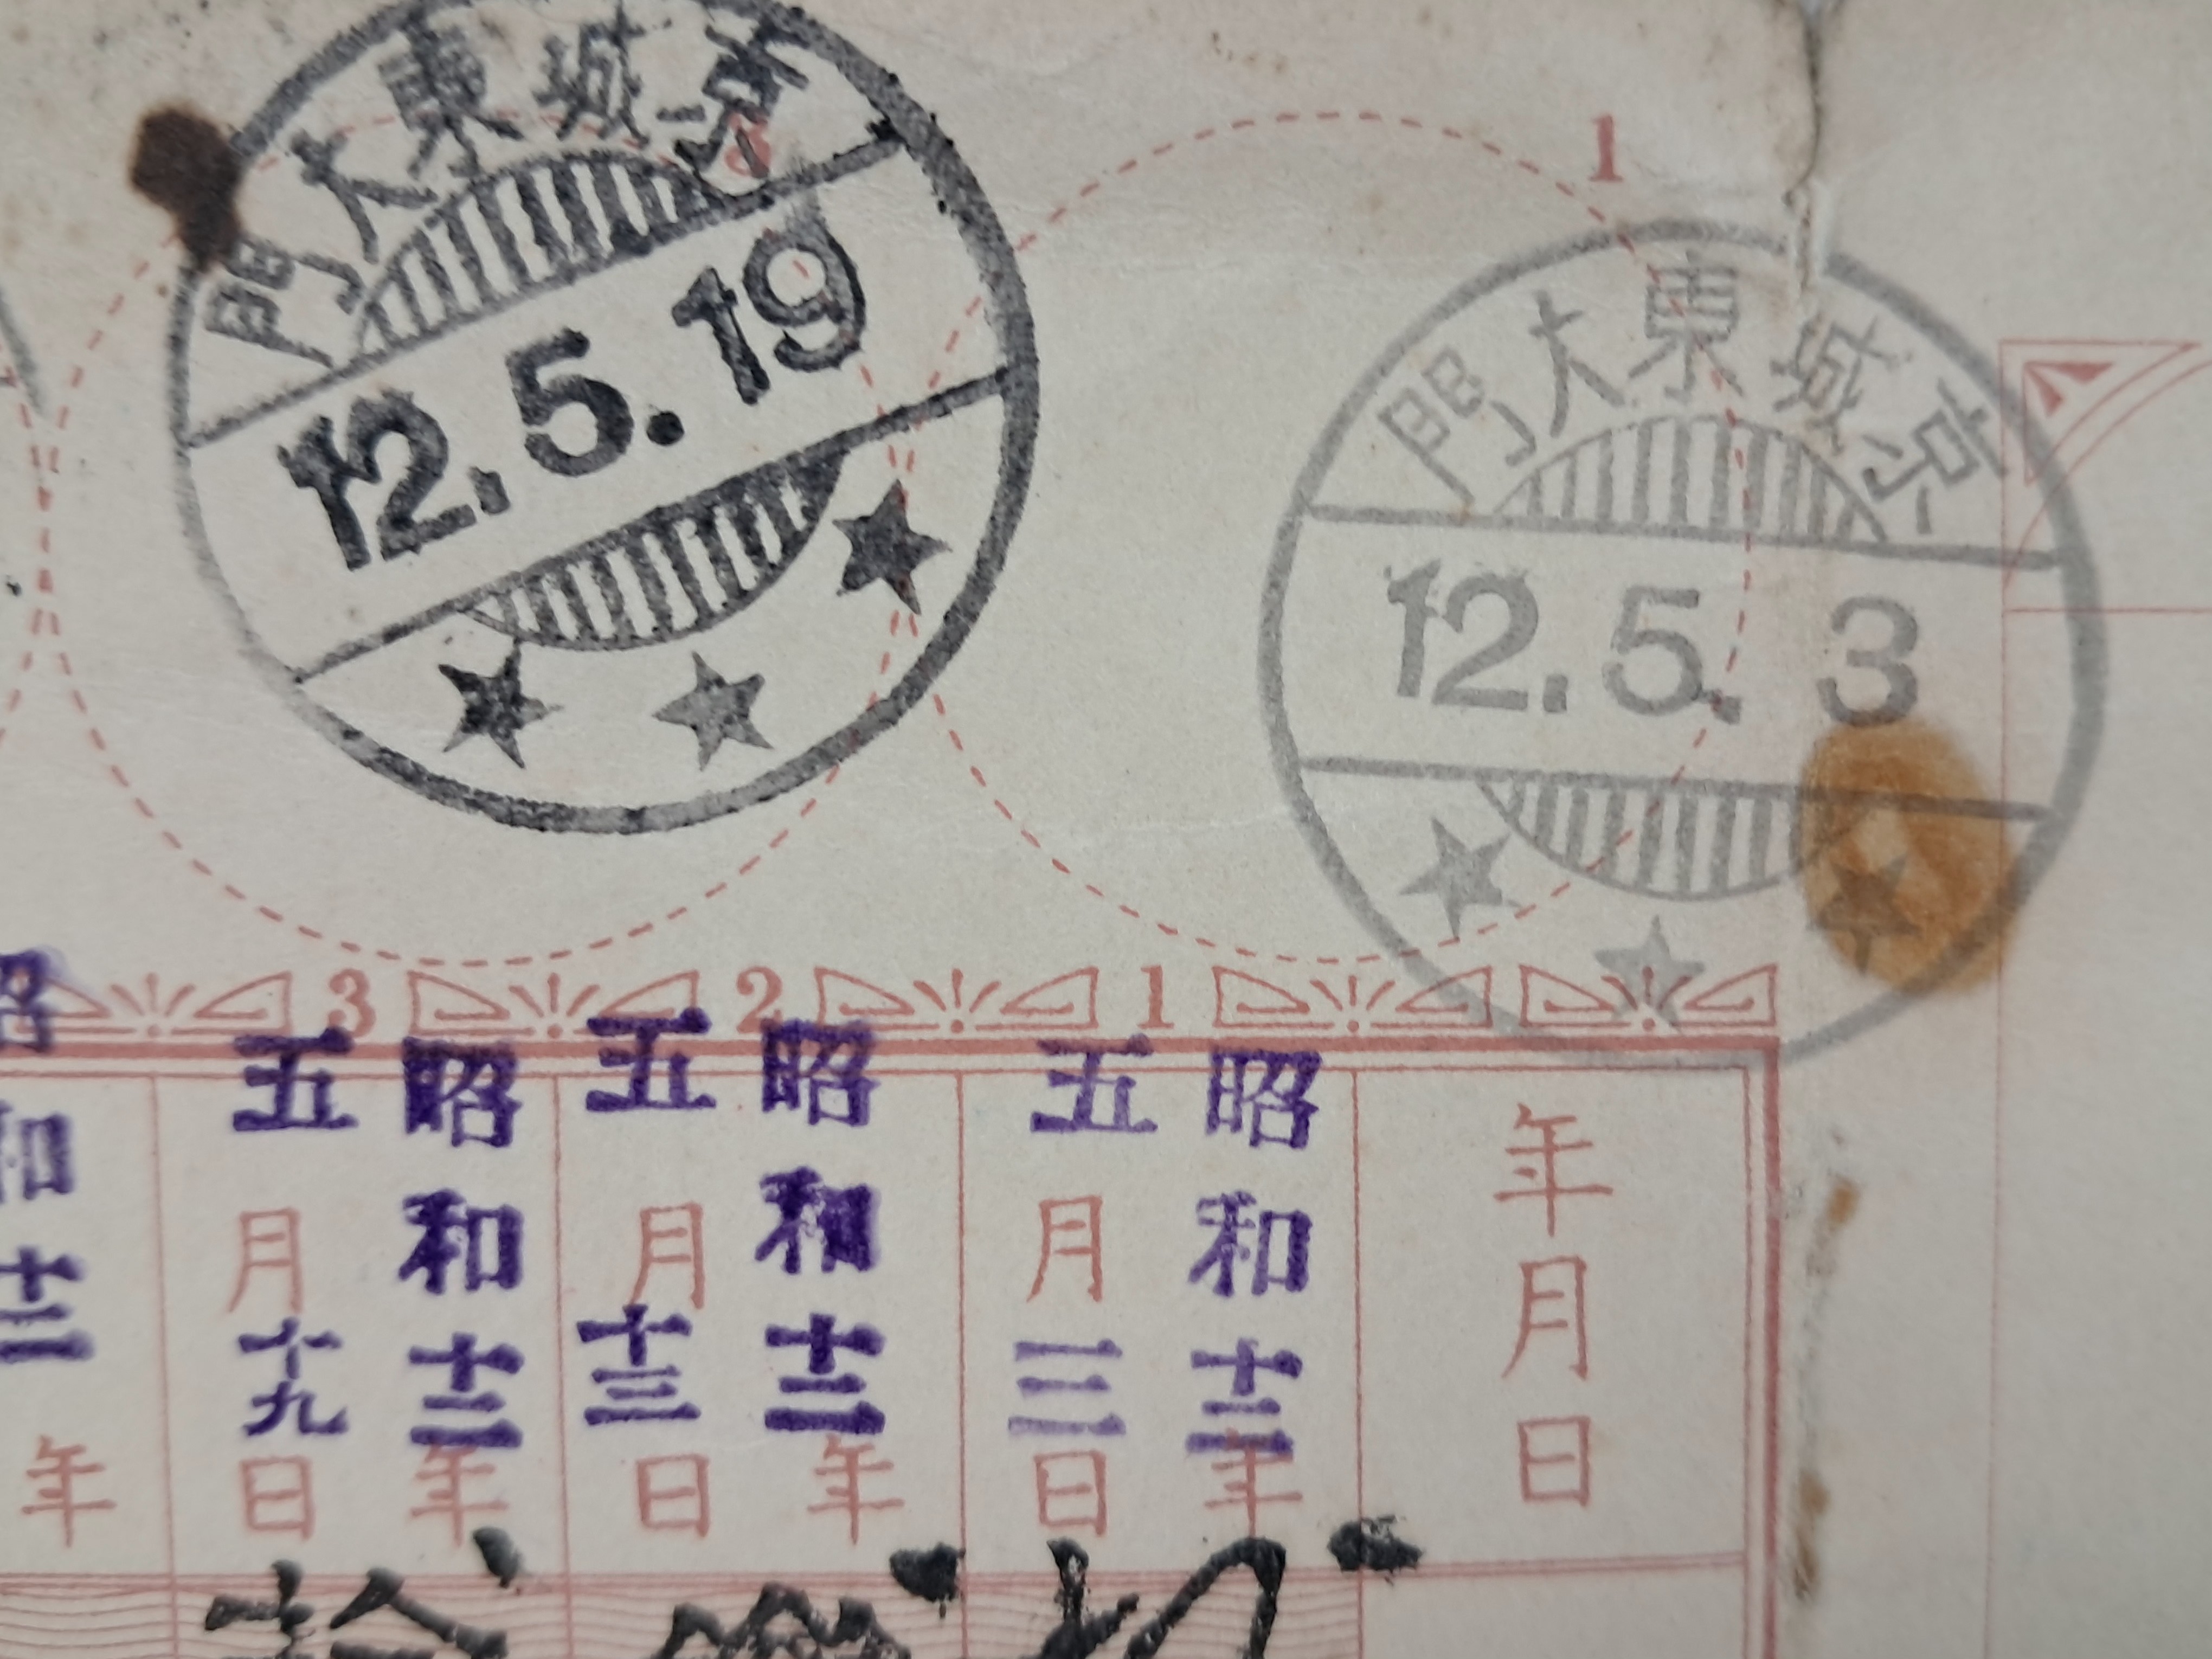 1
京城東大門
12.5.3
3
京城東大門
12.5.19
年月日
1
昭和十二年
五月三日
2
昭和十二年
五月十三日
3
昭和十二年
五月十九日
昭和十二年